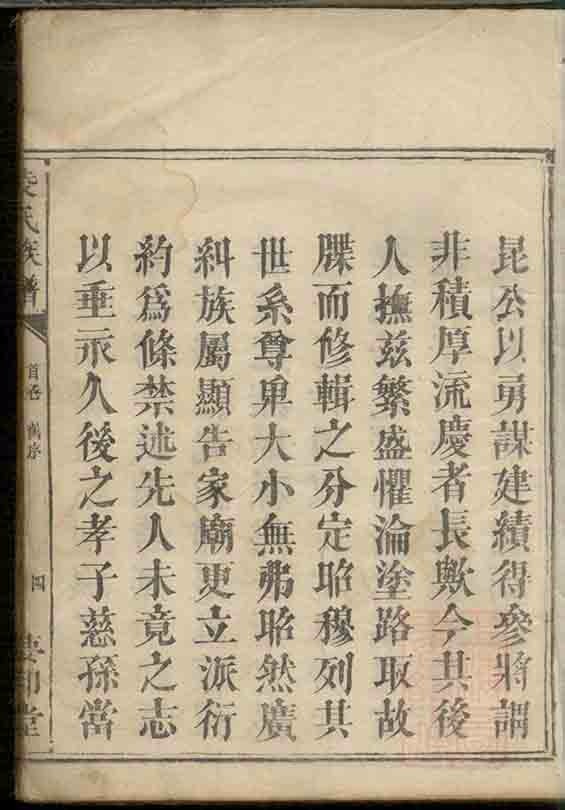 昆公以勇謀建績得參將謂
非積厚流慶者長歟今其後
人撫茲繁盛懼淪塗路取故
牒而修輯之分定昭穆列其
世系尊卑大小無弗昭然廣
糾族屬顯告家廟更立派衍
約爲條禁述先人未竟之志
以垂永久後之孝子慈孫當
氏族譜
首卷 舊序
四
堂